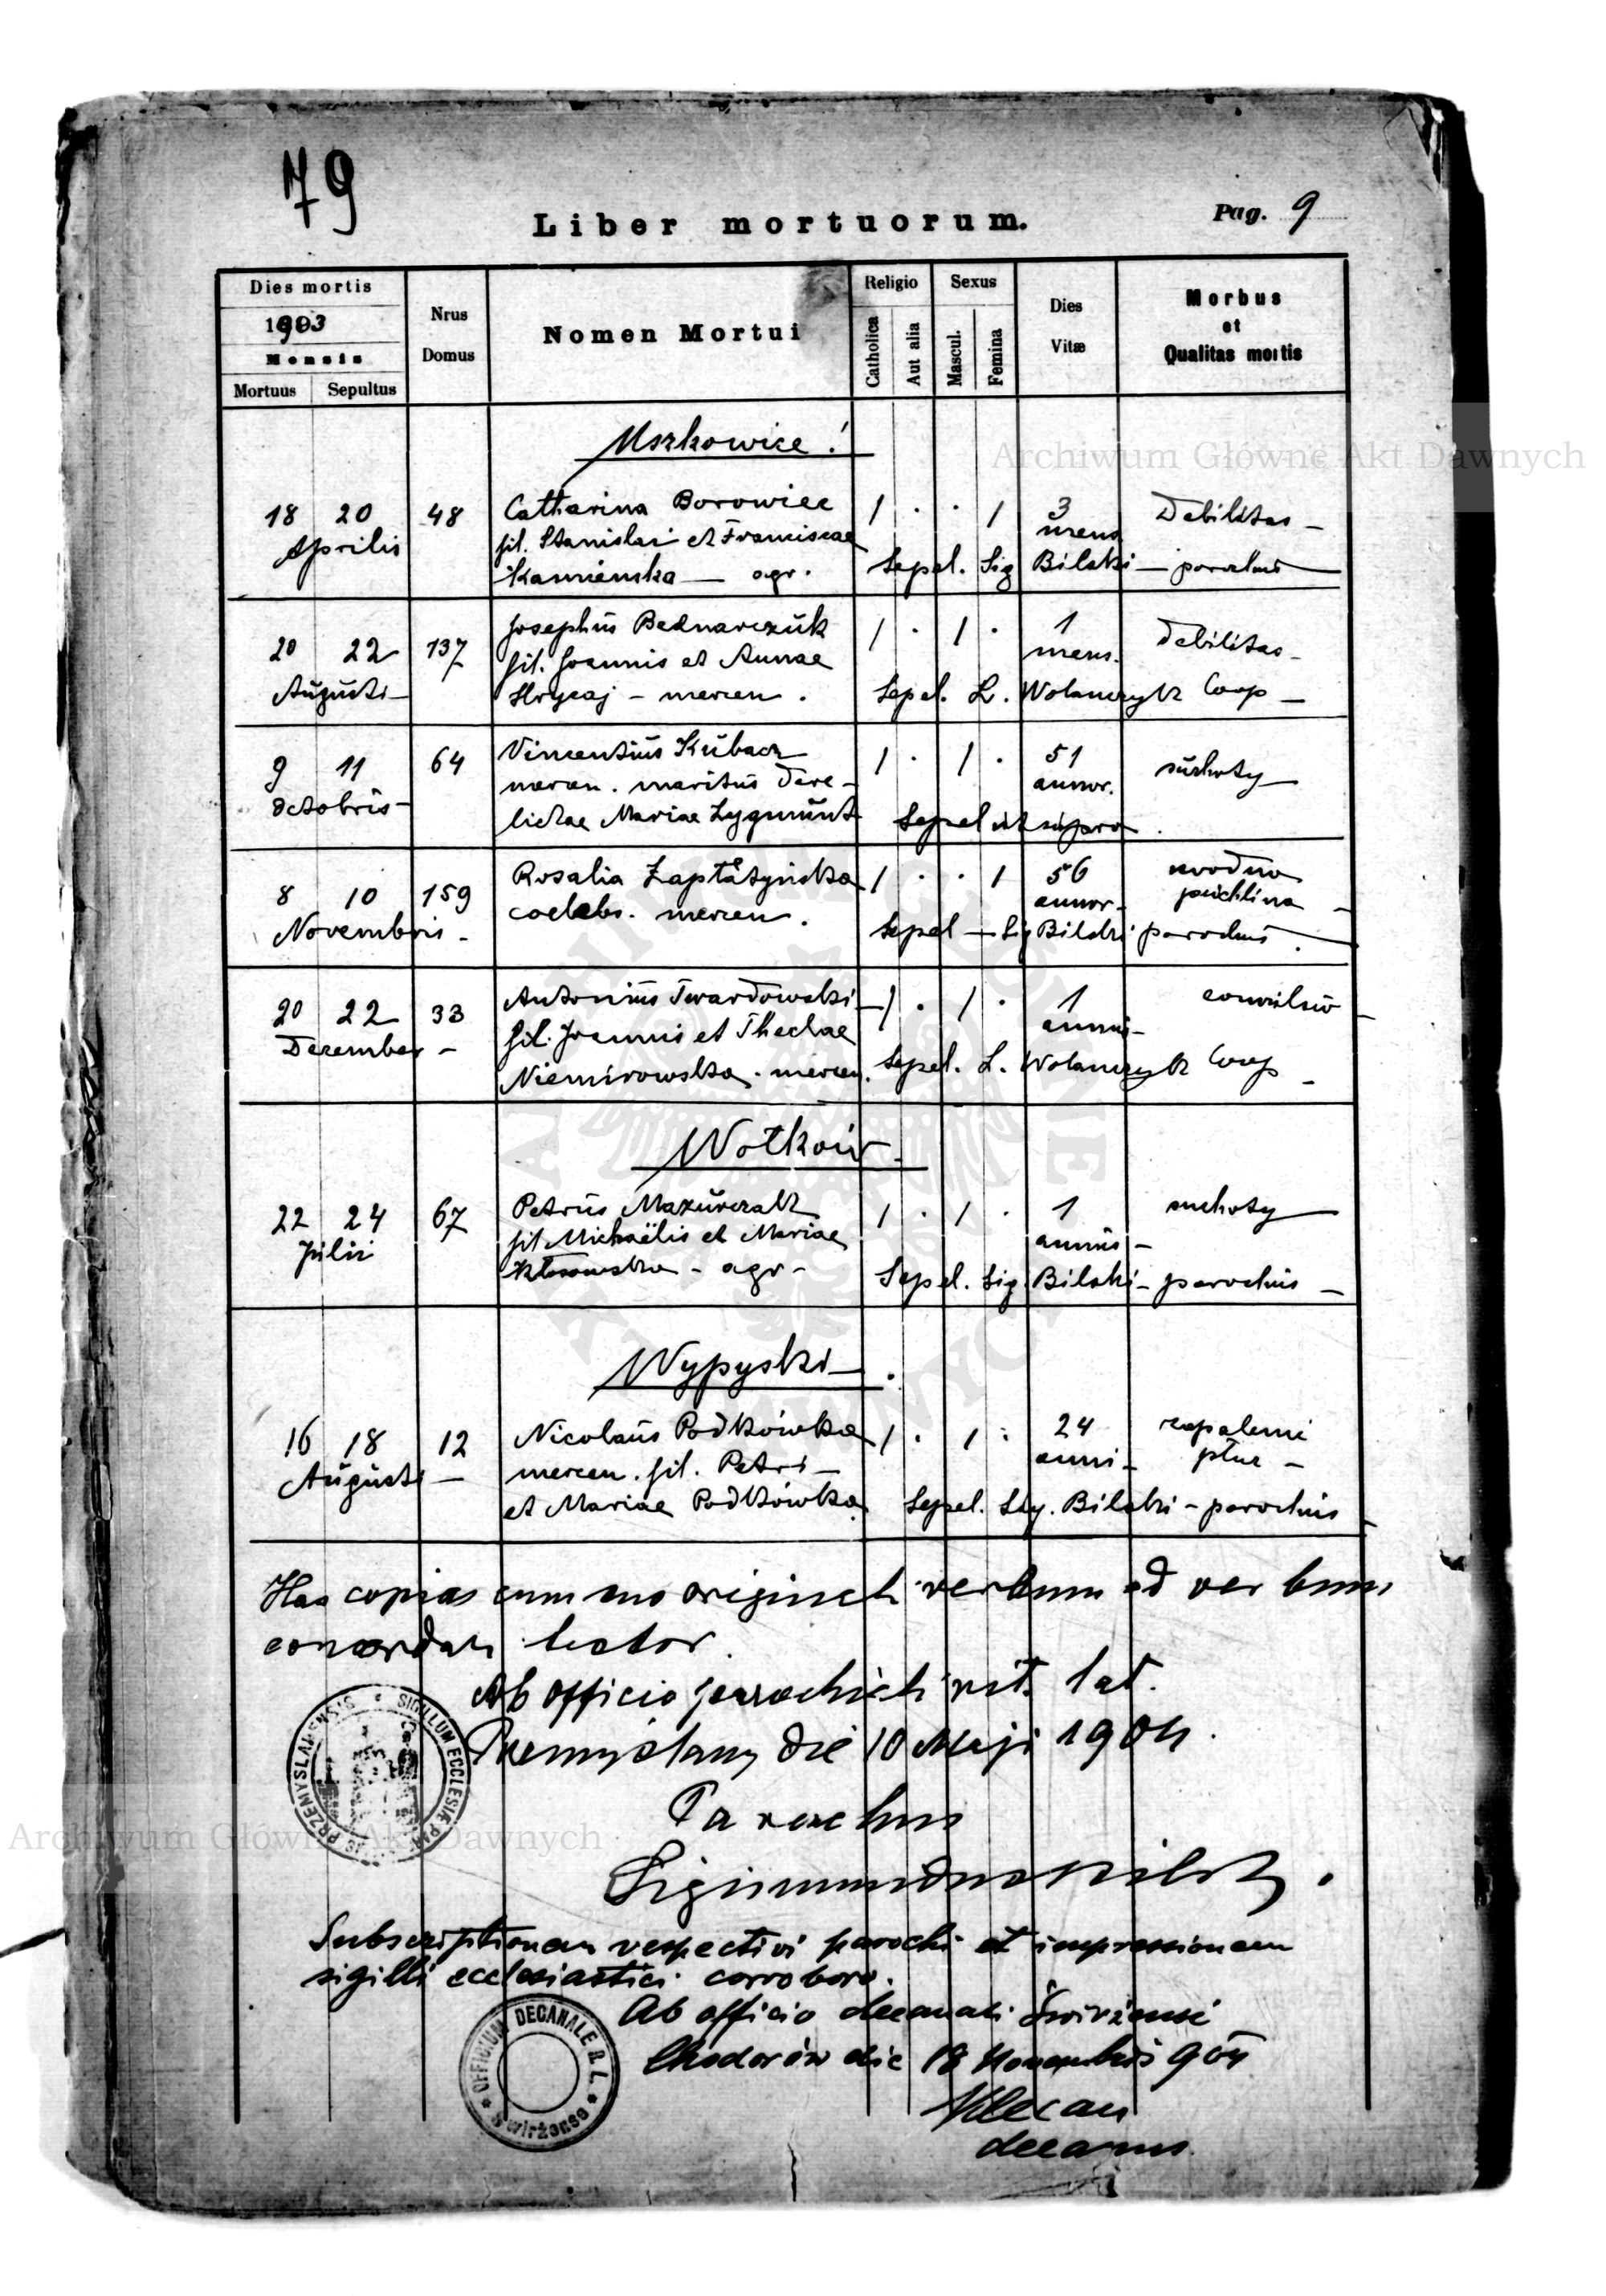 79
Liber mortuorum.
Pag. 9
Dies mortis
1903
Mensis
Mortuus Sepultus
Nrus
Domus
Nomen Mortui
Religio
Catholica
Aut alia
Sexus
Mascul.
Femina
Dies
Vitæ
Morbus
et
Qualitas mortis
Uszkowice!
18 20 48 Catharina Borowiec 1 . . 1 3 Debilitas —
Aprilis fil. Stanislai et Franciscae mens
Kamienska — agr. Sepel. Sig Bilski — parochus
20 22 137 Josephus Bednarczuk 1 . 1 . 1 Debilitas —
Augusti — fil. Joannis et Annae mens.
Hrycaj — mercen. Sepel. L. Wolanczyk Coop —
9 11 64 Vincentius Kubacz 1 . 1 . 51 suchoty —
Octobris — mercen. maritus dere-
annor.
lictae Mariae Zygmunt Sepel ut supra.
8 10 159 Rosalia Zaptatyńska 1 . . 1 56 wodna
Novembris — coelebs. mercen. annor — puchlina —
Sepel — Sig Bilski parochus.
20 22 33 Antonius Twardowski — 1 . 1 . 1 convulsio —
December — fil. Joannis et Theclae annus —
Niemirowska. mercen. Sepel. L. Wolanczyk Coop —
Wołków —
22 24 67 Petrus Mazurczak 1 . 1 . 1 suchoty —
Julii fil Michaëlis et Mariae annus —
Kłosowska — agr — Sepel. Sig. Bilski — parochus —
Wypyski — .
16 18 12 Nicolaus Podkówka 1 . 1 . 24 zapalenie
Augusti — mercen. fil. Petri — anni — płuc —
et Mariae Podkówka Sepel. Sig. Bilski — parochus —
Has copias cum suo originali verbum ad verbum
concordare testor.
Ab officio parochiali rit. lat.
Przemyślany die 10 Maji 1904.
Parochus
Sigismundus Bilski.
SIGILLUM ECCLESIÆ PAR PRZEMYSLANENSIS
Subscriptionem respectivi parochi et impressionem
sigilli ecclesiastici corroboro.
Ab officio decanali Świrzensi
Chodorów die 18 Novembris 904
OFFICIUM DECANALE R. L. Swirżense
decanus.
Archiwum Główne Akt Dawnych
Archiwum Główne Akt Dawnych
ARCHIWUM GŁÓWNE AKT DAWNYCH